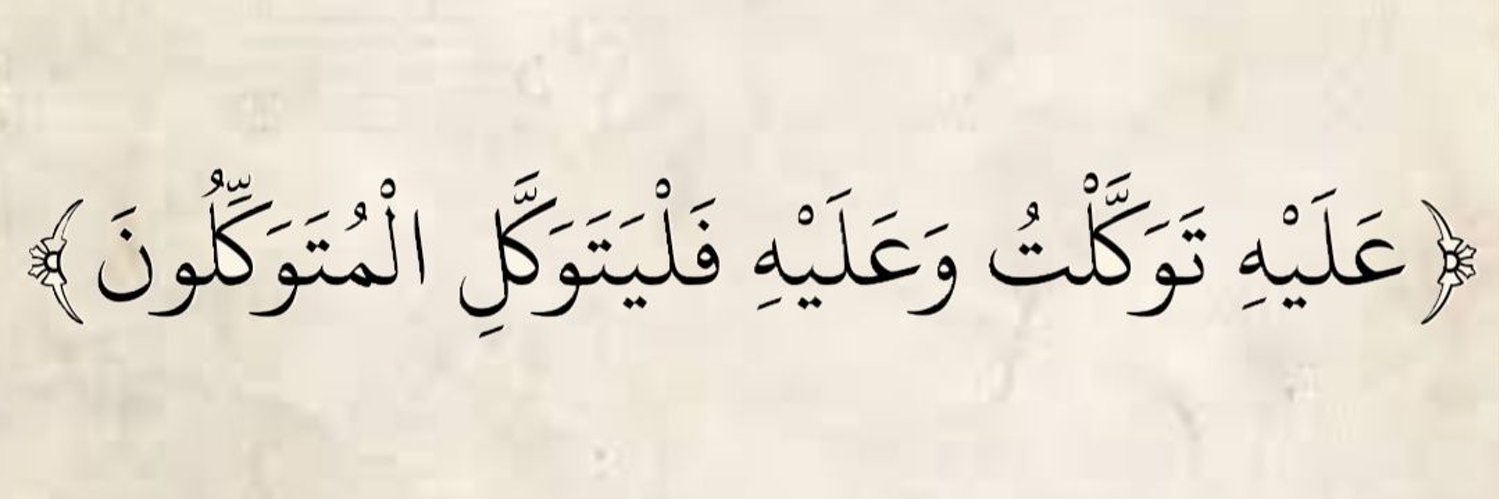 ﴿ عَلَيْهِ تَوَكَّلْتُ وَعَلَيْهِ فَلْيَتَوَكَّلِ الْمُتَوَكِّلُونَ ﴾